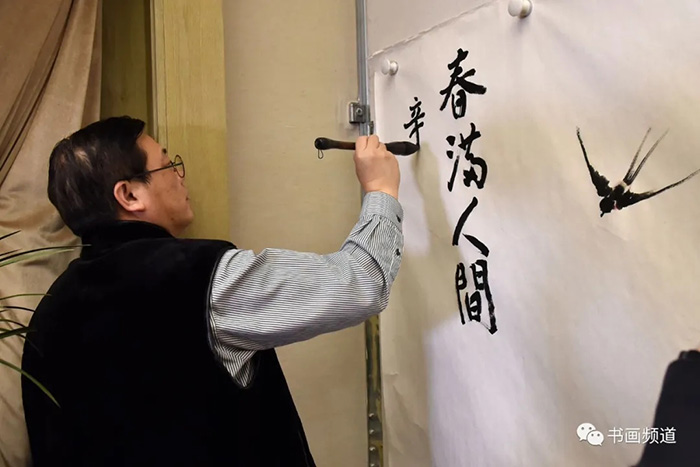 春滿人間
辛
书画频道